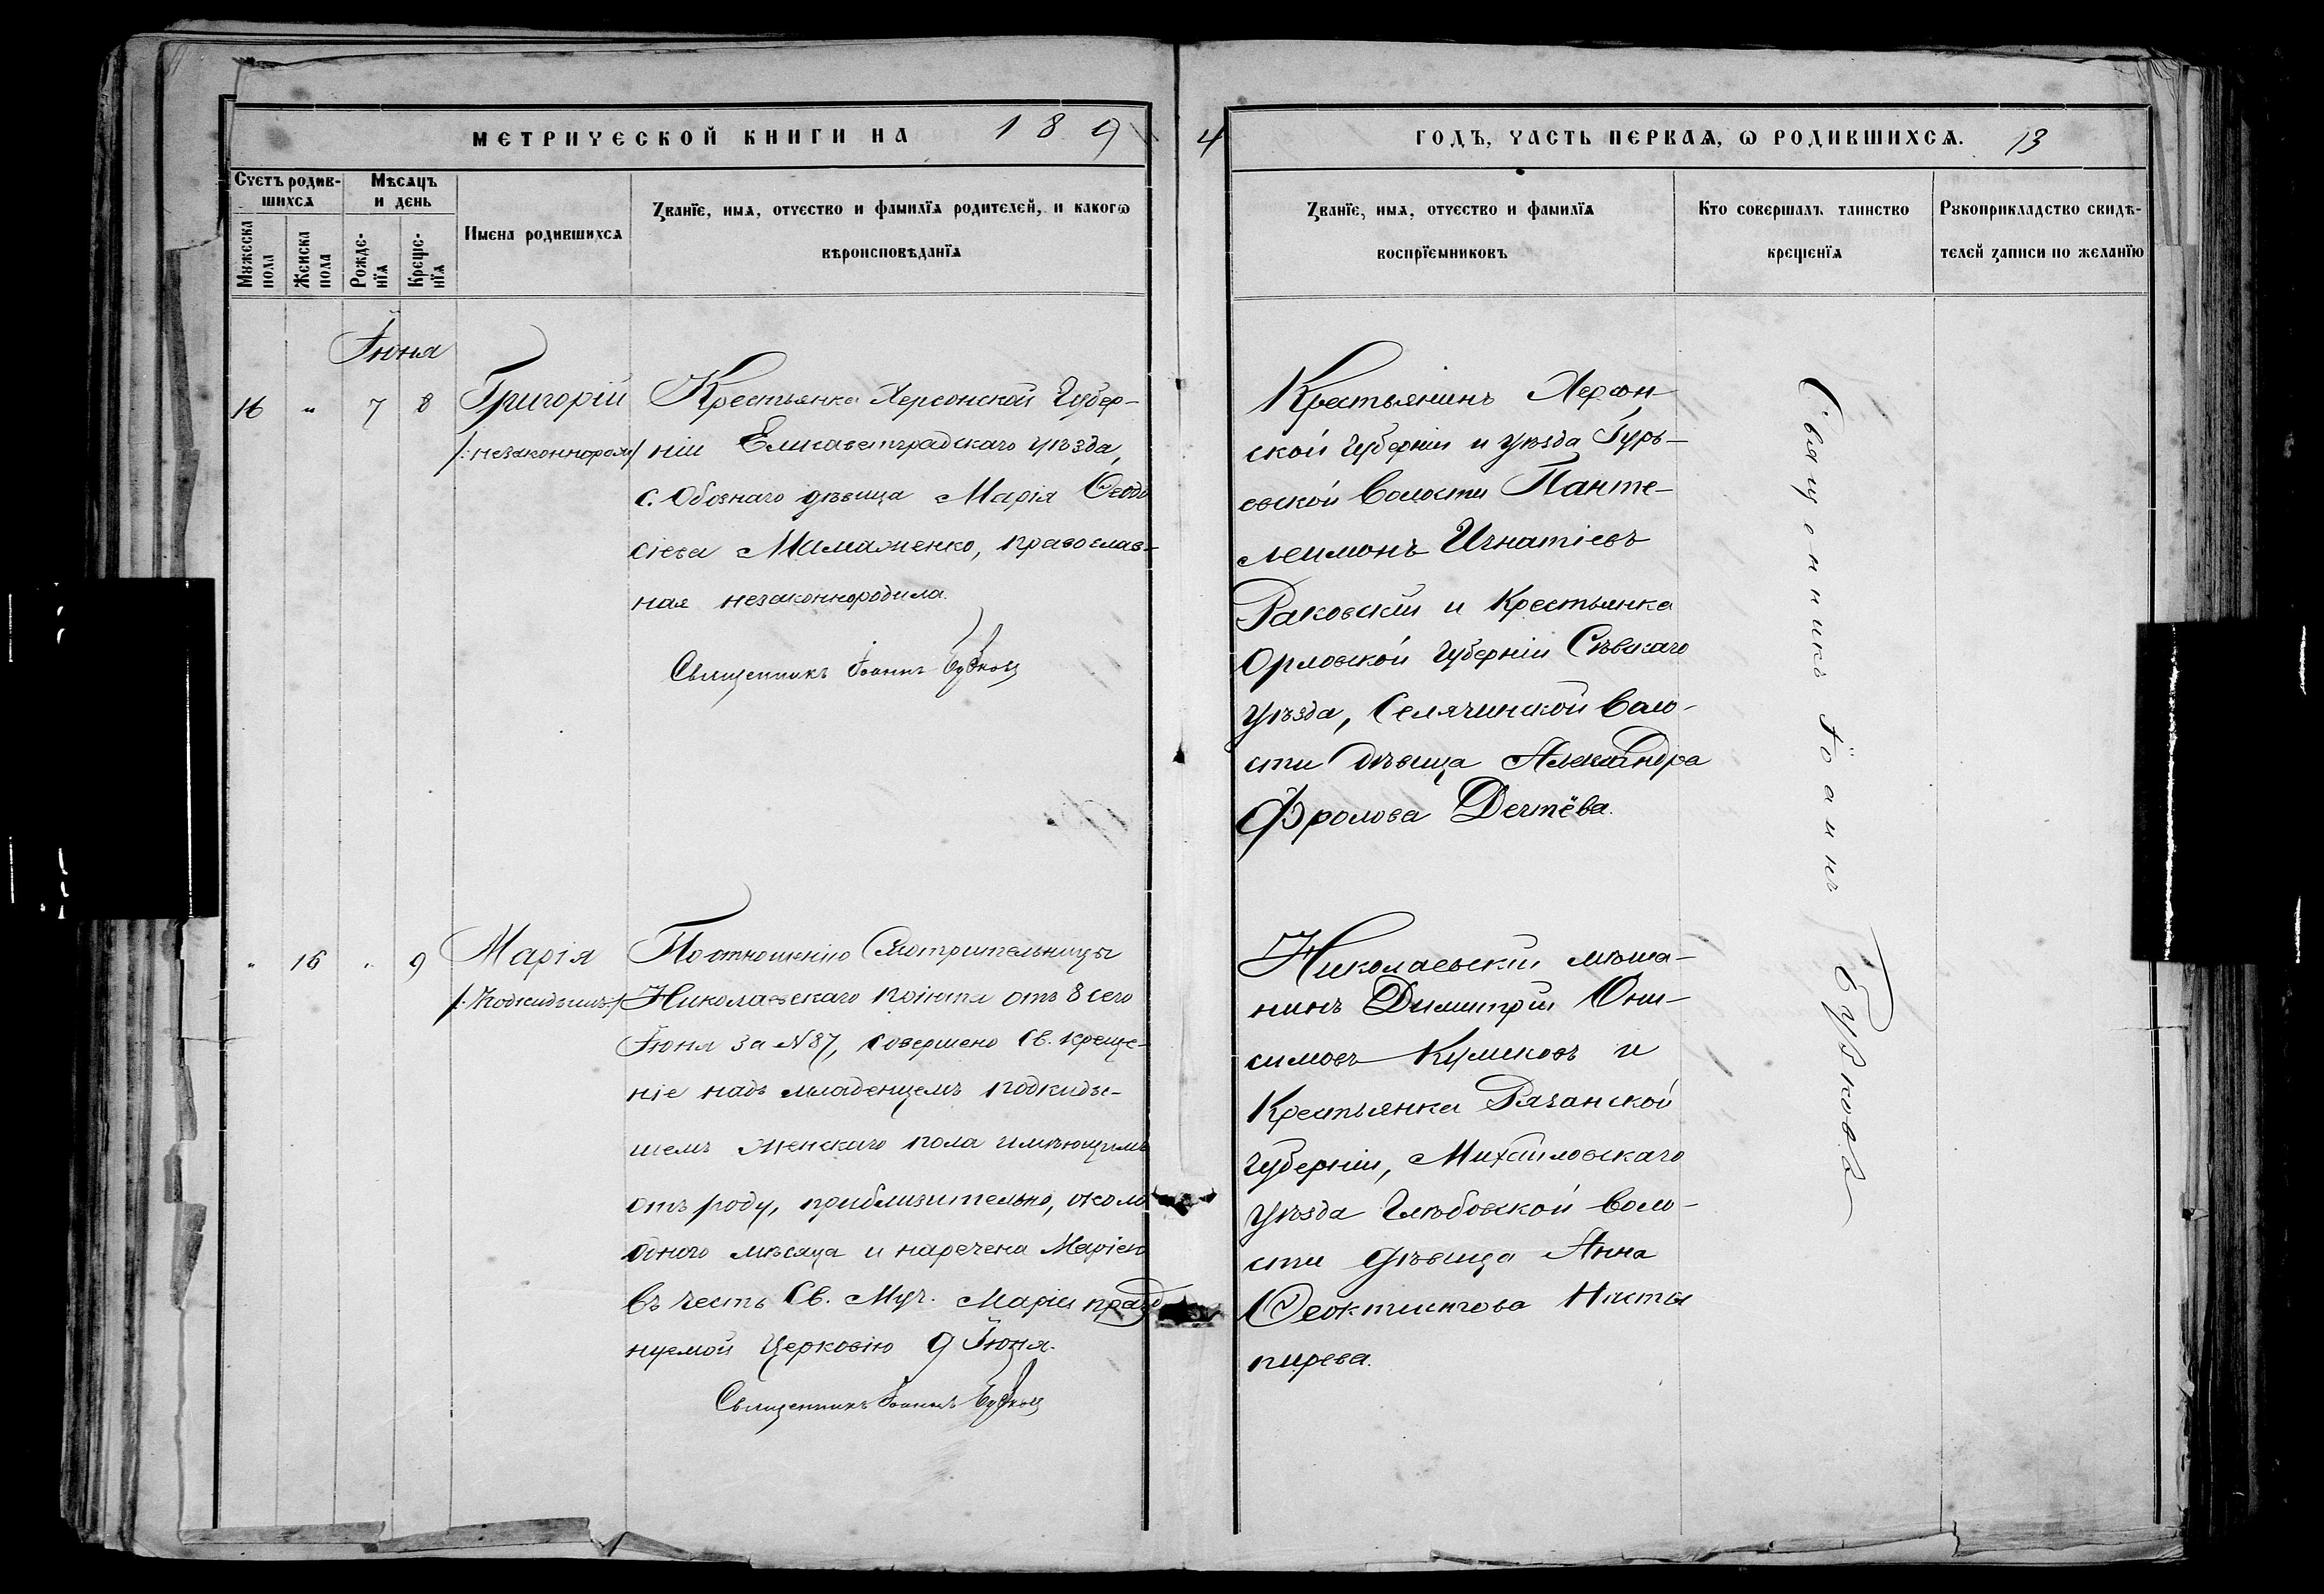 МЕТРИЧЕСКОЙ КНИГИ НА 189
4 ГОДЪ, ЧАСТЬ ПЕРВАѦ, Ѡ РОДИВШИХСѦ. 13
Счетъ родив-
шихсѧ
Мѣсѧцъ
и день
Мꙋжеска
пола
Женска
пола
Рожде-
нїѧ
Креще-
нїѧ
Имена родившихсѧ
Ꙁванїе, имѧ, отчество и фамилїѧ родителей, и какогѡ
вѣроисповѣданїѧ
Ꙁванїе, имѧ, отчество и фамилїѧ
воспрїемниковъ
Кто совершалъ таинство
крещенїѧ
Рꙋкоприкладство свидѣ-
телей ꙁаписи по желанїю
Іюня
16 " 7 8
Григорій
/:незаконнорож:/
Крестьянка Херсонской Губер-
ніи Елисаветградскаго уѣзда,
с. Обознаго дѣвица Марія Ѳеодо
сіева Мамаженко, православ-
ная незаконнородила.
Священникъ Іоаннъ
Крестьянинъ Херсон-
ской Губерніи и уѣзда Гурь-
евской Волости Панте-
леимонъ Игнатіевъ
Раковскій и Крестьянка
Орловской Губерніи Сѣвскаго
уѣзда, Селячинской Воло-
сти дѣвица Александра
Фролова Дегтёва.
Священникъ Іоаннъ
" 16 " 9
Марія
/:Подкидышъ:/
По отношенію Смотрительницы
Николаевскаго пріюта отъ 8 сего
Іюня за N 87, совершено Св. креще-
ніе надъ младенцемъ подкиды-
шемъ женскаго пола имѣющимъ
отъ роду, приблизительно, около
одного мѣсяца и наречена Маріею
въ честь Св. Муч. Маріи празд
нуемой Церковію 9 Іюня.
Священникъ Іоаннъ
Николаевскій мѣща-
нинъ Димитрій Они-
симовъ Куликовъ и
Крестьянка Рязанской
Губерніи, Михайловскаго
уѣзда Глѣбовской воло-
сти дѣвица Анна
Ѳеоктистова
пирева.